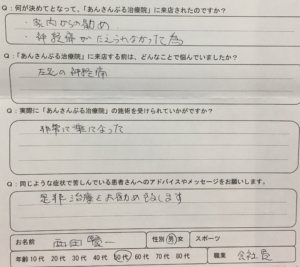 Q：何が決めてとなって、「あんさんぶる治療院」に来店されたのですか？
・家内からの勧め
・神経痛がたえられなかった為
Q：「あんさんぶる治療院」に来店する前は、どんなことで悩んでいましたか？
左足の神経痛
Q：実際に「あんさんぶる治療院」の施術を受けられていかがですか？
非常に楽になった
Q：同じような症状で苦しんでいる患者さんへのアドバイスやメッセージをお願いします。
是非治療をお勧め致します
お名前 西田 性別 男 女 スポーツ
年齢 10代 20代 30代 40代 50代 60代 70代 80代 職業 会社員